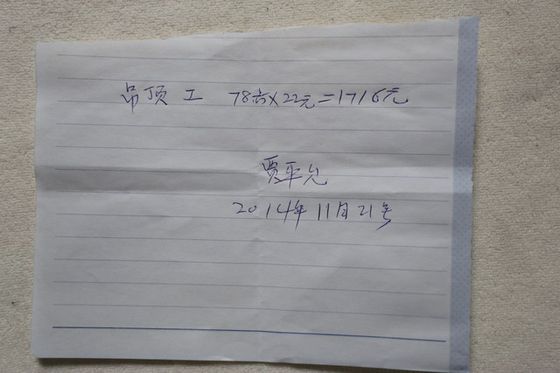 吊顶工 78方×22元=1716元
贾平允
2014年11月21号